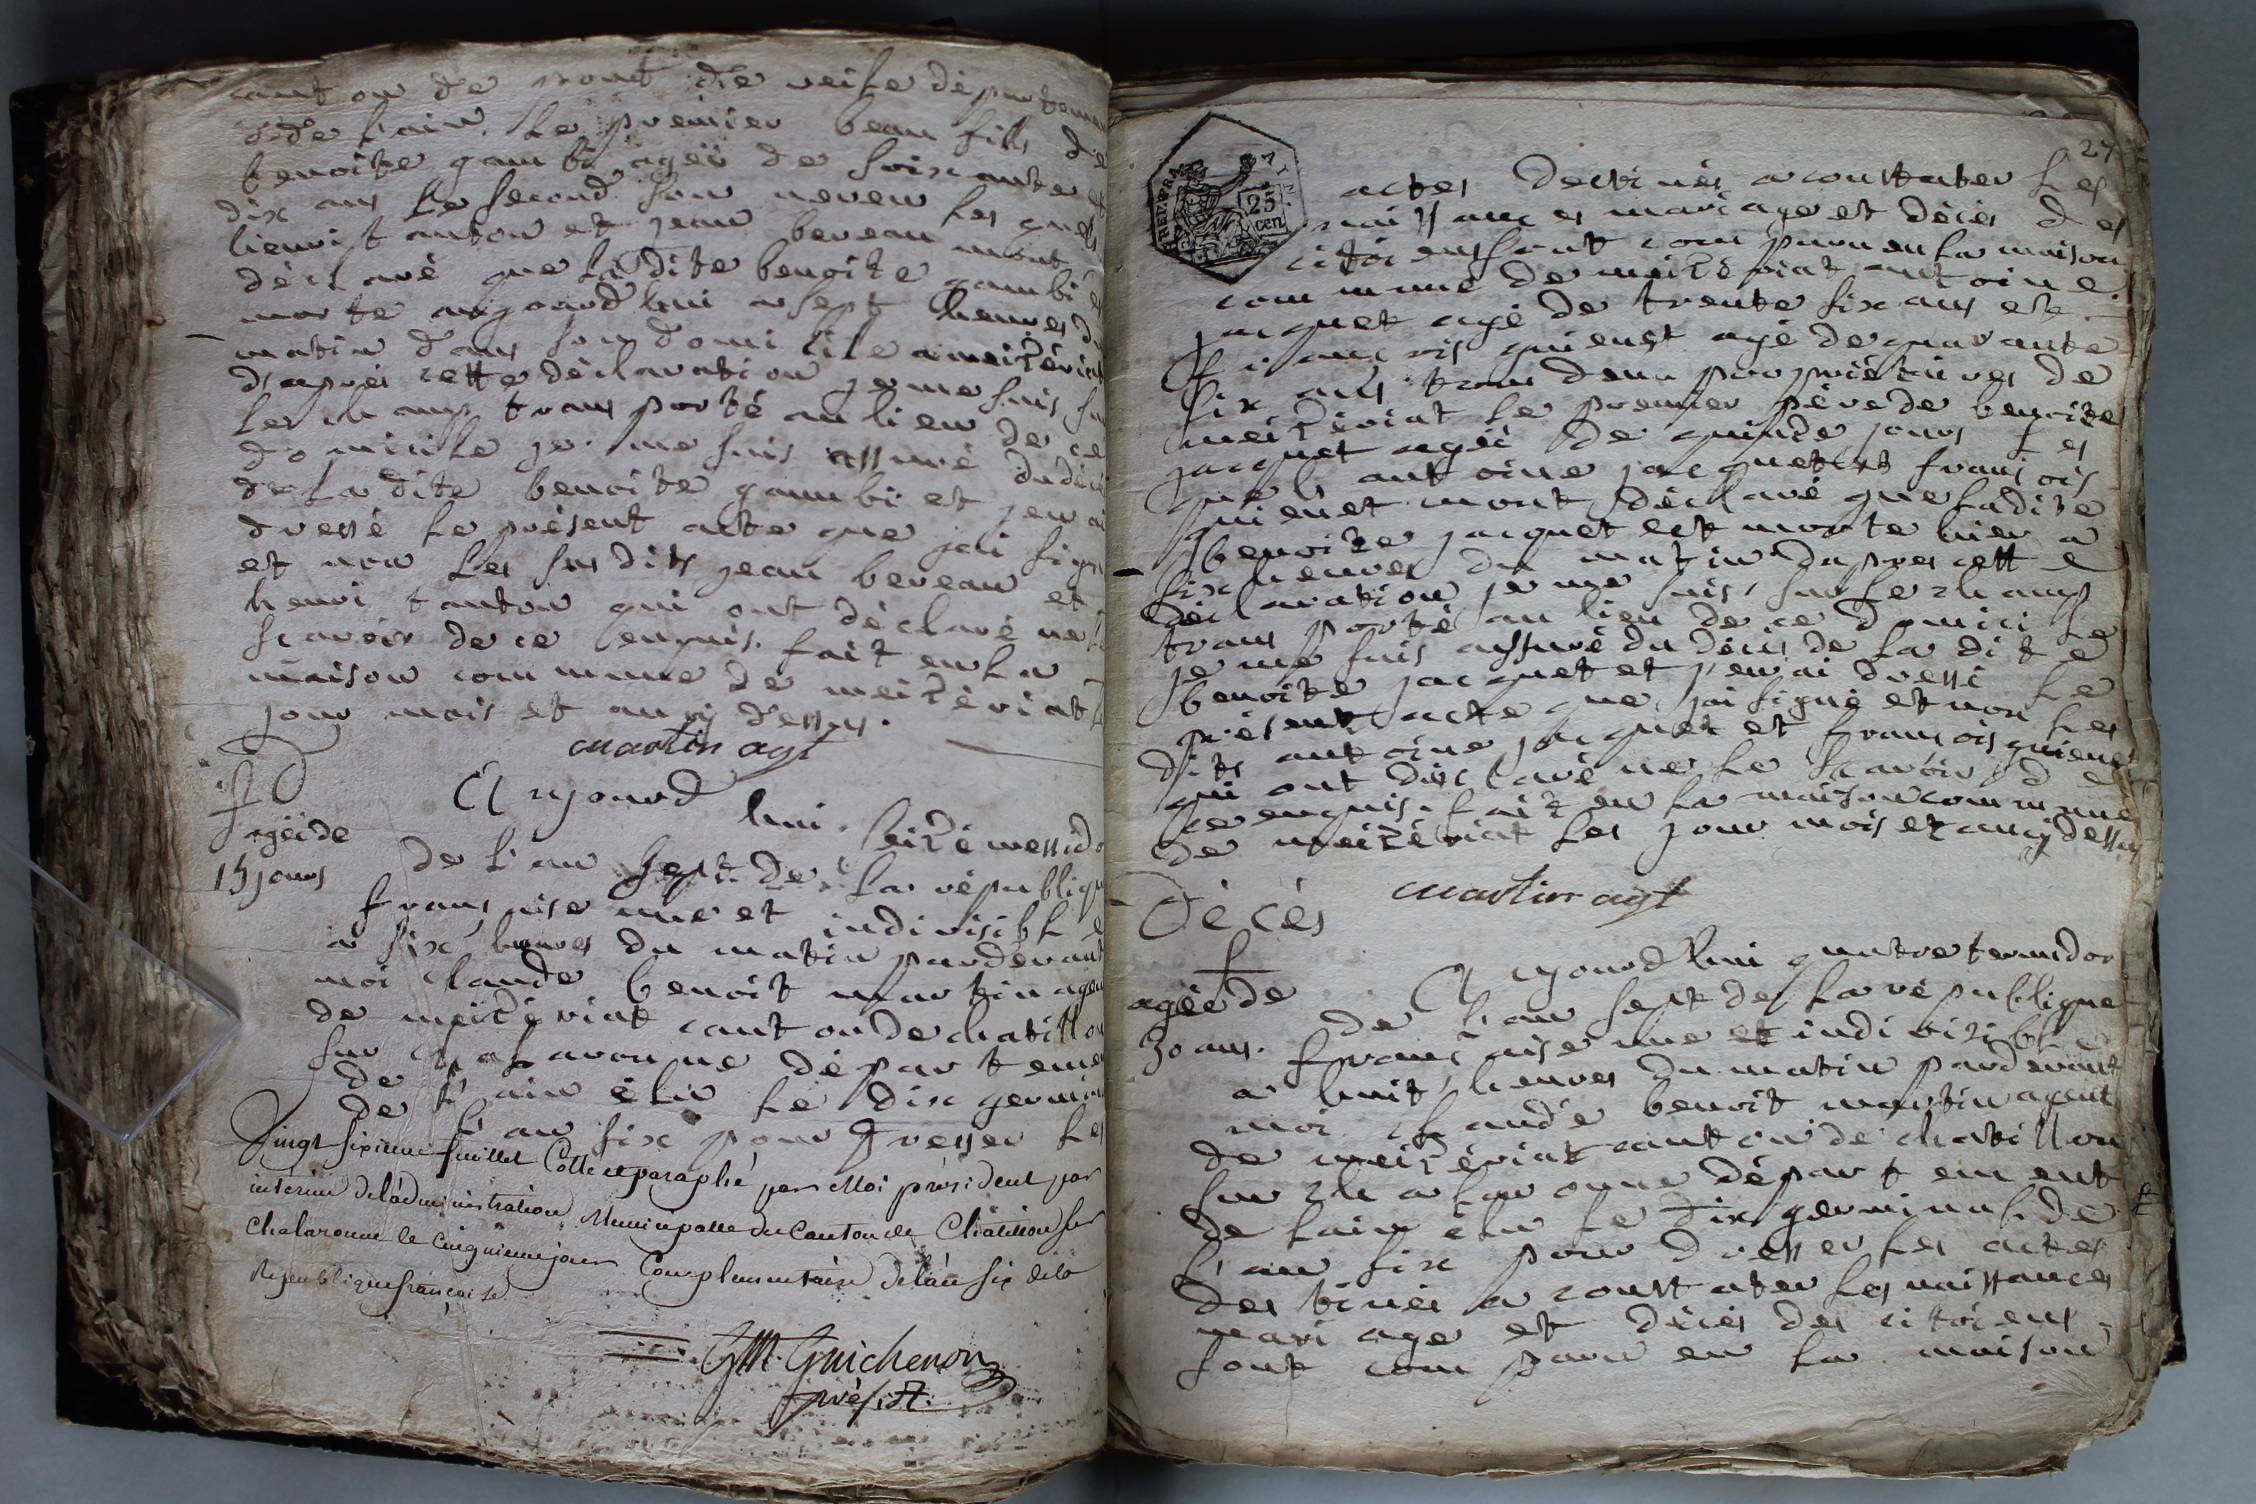 cant on de pont de veile departemen
de l'ain. Le premier beau fills de
benoite gambi ageé de soixante et
dix ans le second son neveu les quels
henri tanton et jean bereau mont
déclaré que la dite benoite gambi é
morte aujourd'hui a sept heures du
matin dans son domi cile a meizériat
d'aprés cette déclaration je me suis su
le champ trans porté au lieu de ce
domicile je me suis assuré du décé
de la dite benoite gambi et jen ai
dressé le présent acte que jai signé
et non les sus dits jean bereau et
henri tanton qui ont déclaré ne
scavoir de ce enquis. fait en la
maison commune de meizériat
jour mois et an cy dessus.
martin agt
D
ageé de
15 jours
Aujourd hui. seize messido
de l'an sept de la républiqu
française une et indivisible
a six heures du matin pardevant
moi claude benoit martin agen
de meizériat cant on de chatillon
sur chalaronne départ emen
de l'ain élu le dix germin
de l'an six pour dresser les
Vingt sixieme feuillet Cotté et paraphé par Moi président par
interim de l'administration Municipalle du Canton de Chatillon sur
Chalaronne le cinquieme jour Complementaire de l'an six de la
République française
GM. Guichenon
présidt.
27
REP. FRA.
25
cen
actes destinés a constater les
naissances mariage et décés des
citoiens sont com paru en la maison
com mune de meizériat antoine
jacquet agé de trente six ans et
francois quienet agé de quarante
six ans tous deux propriétaires de
meizériat le premier pére de benoite
jacquet ageé de quinze jours les
quels antoine jacquet et francois
quienet mont déclaré que ladite
benoite jacquet est morte hier a
six heures du matin dapres cett e
déclaration je me suis sur le champ
trans porté au lieu de ce domici le
je me suis assuré du décés de la dite
benoite jacquet et j'en ai dressé le
présent acte que jai signé et non les
dits antoine jacquet et francois quienet
qui ont déclaré ne le scavoir de
ce enquis. fait en la maison commune
de meizériat les jour mois et an cy dessus
martin agt
Décés
ageé de
30 ans.
Aujourd hui quatre termidor
de l'an sept de la république
française une et indivisible
a huit heures du matin pardevant
moi claude benoit martin agent
de meizériat cant on de chatillon
sur chalaronne départ em ent
de l'ain élu le dix germinal de
l'an six pour dresser les actes
des tinés a const ater les naissances
mari age et décés des citoiens
sont com paru en la maison